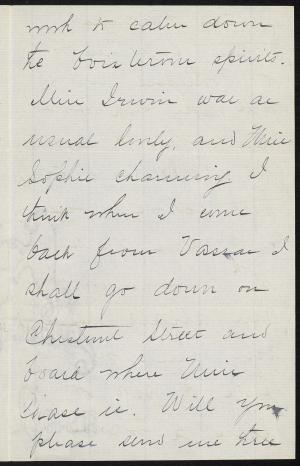 work to calm down
the boisterous spirits.
Miss Irwin was as
usual lovely, and Miss
Sophie charming I
think when I come
back from Vassar I
shall go down on
Chestnut Street and
board where Miss
Case is. Will you
please send me three